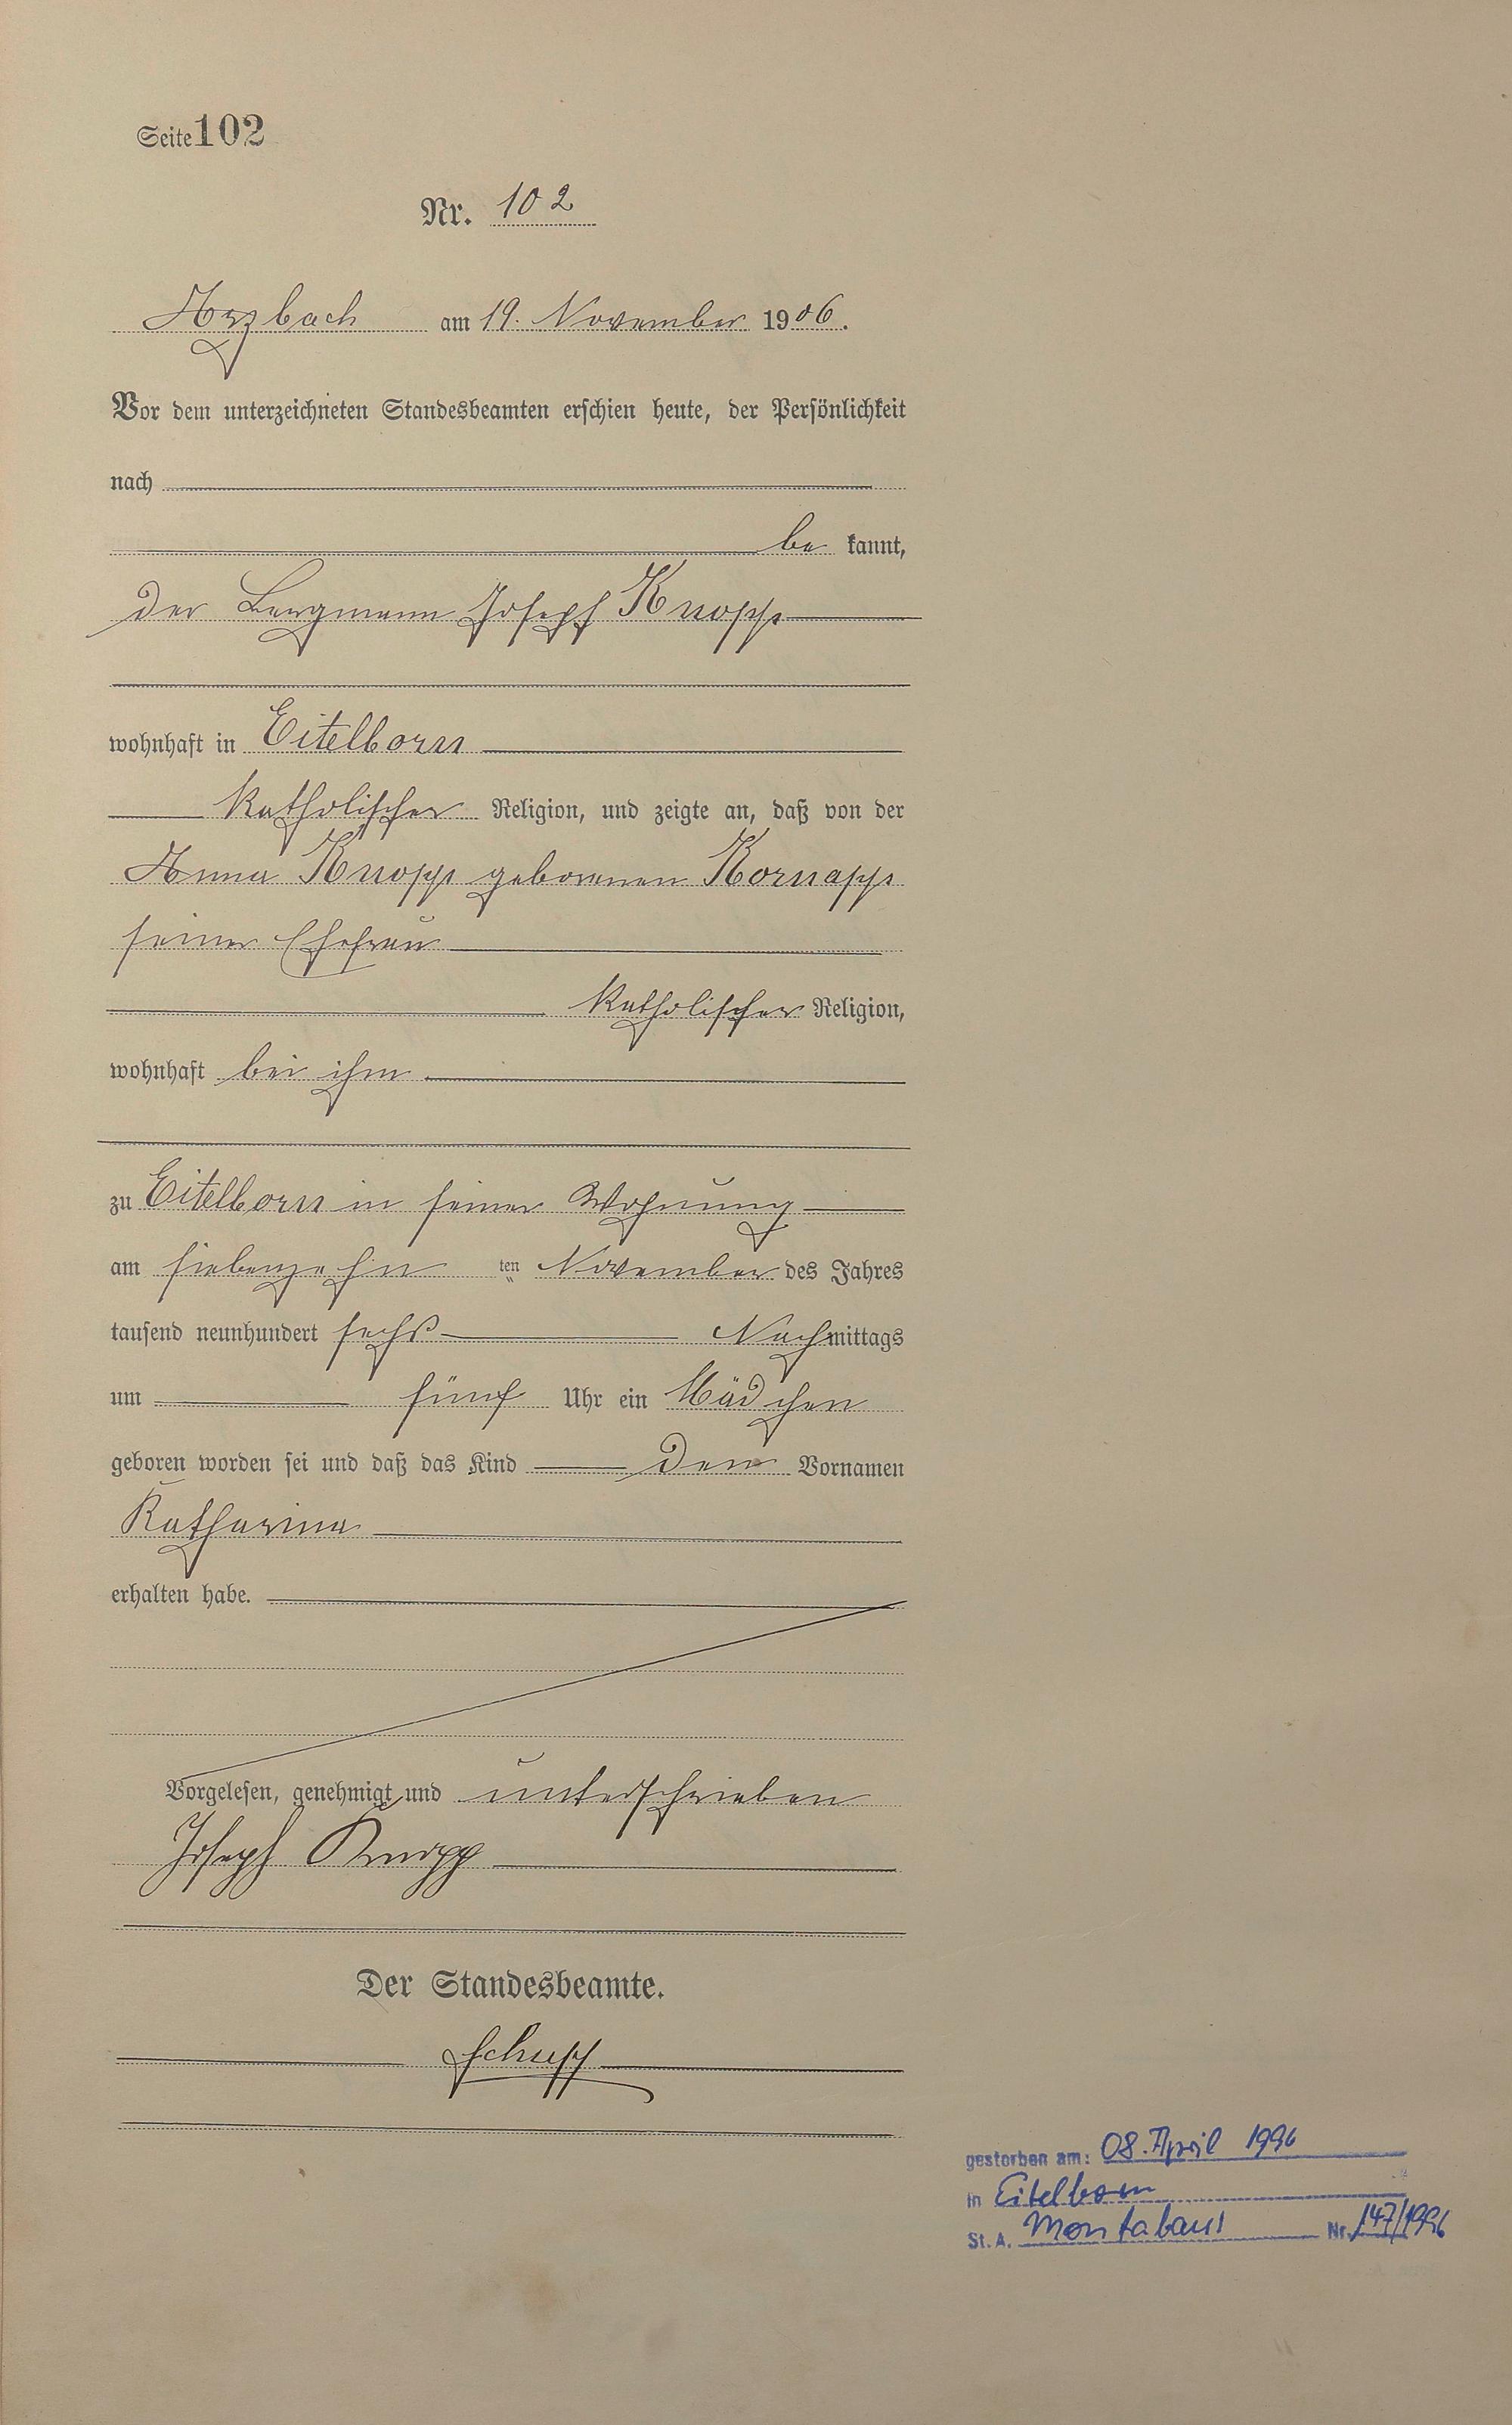 Seite 102
Nr. 102
Arzbach am 19. November 1906.
Vor dem unterzeichneten Standesbeamten erschien heute, der Persönlichkeit
nach
be kannt,
der Bergmann Joseph Knopp
wohnhaft in Eitelborn
katholischer Religion, und zeigte an, daß von der
Anna Knopp geborenen Kornapp
seiner Ehefrau
katholischer Religion,
wohnhaft bei ihm
zu Eitelborn in seiner Wohnung
am siebenzehn ten November des Jahres
tausend neunhundert sechs Nachmittags
um fünf Uhr ein Mädchen
geboren worden sei und daß das Kind den Vornamen
Katharina
erhalten habe.
Vorgelesen, genehmigt und unterschrieben
Joseph Knopp
Der Standesbeamte.
Schupp
gestorben am: 08. April 1996
in Eitelborn
St. A. Montabaur Nr. 147/1996